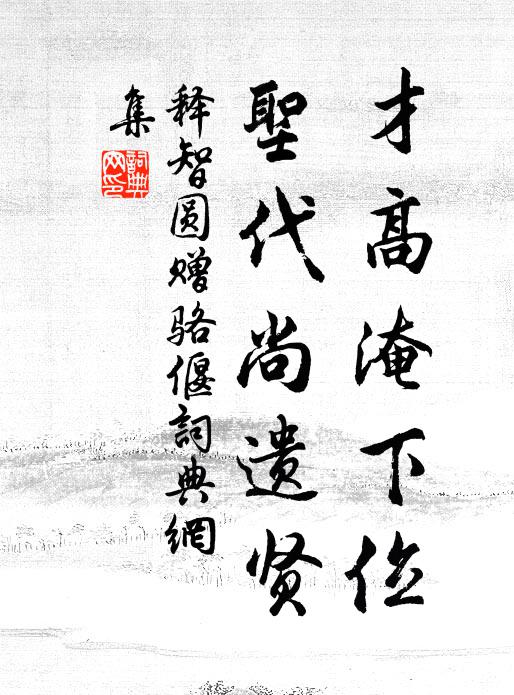 才高淹下位
聖代尚遺贤
释智圆赠骆偃詞典網
集
詞典网印